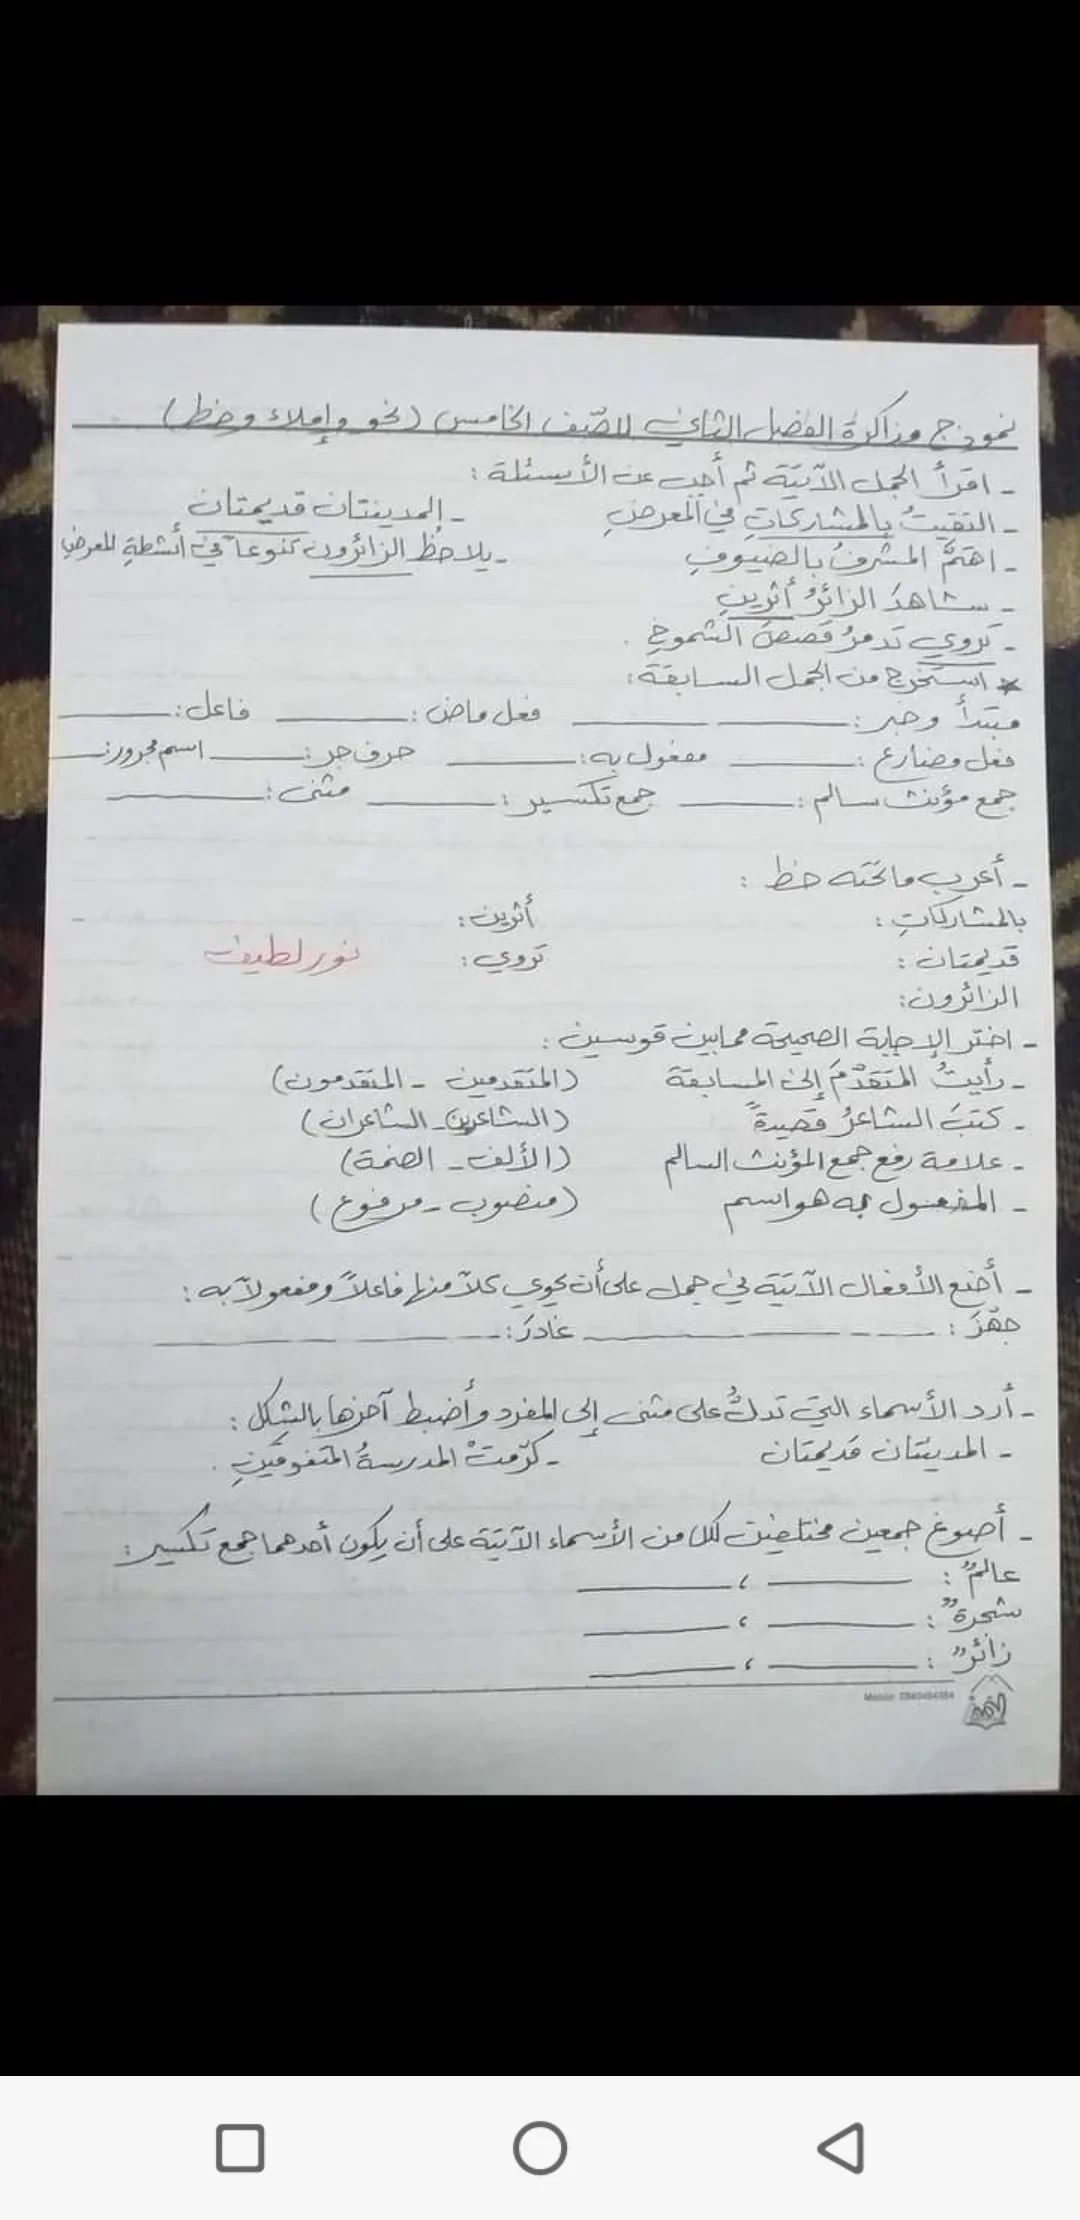 نموذج مذاكرة الفصل الثاني للصّف الخامس (نحو وإملاء وخط)
- اقرأ الجمل الآتية ثم أجب عن الأسئلة :
- التقيتُ بالمشاركاتِ في المعرضِ - المدينتان قديمتان
- اهتمَّ المشرفُ بالضيوفِ - يلاحظُ الزائرون تنوعاً في أنشطةِ المعرضِ
- شاهدَ الزائرُ أثرينِ
- تروي تدمرُ قصصَ الشموخِ .
* استخرج من الجمل السابقة :
مبتدأ وخبر : ____ ____ فعل ماض : ____ فاعل : ____
فعل مضارع : ____ مفعول به : ____ حرف جر : ____ اسم مجرور : ____
جمع مؤنث سالم : ____ جمع تكسير : ____ مثنى : ____
- أعرب ما تحته خط :
بالمشاركاتِ : أثرين :
قديمتان : تروي : نور لطيف
الزائرون :
- اختر الإجابة الصحيحة مما بين قوسين :
- رأيتُ المتقدّمَ إلى المسابقة (المتقدمين - المتقدمون)
- كتبَ الشاعرُ قصيدةً (الشاعرين - الشاعران)
- علامة رفع جمع المؤنث السالم (الألف - الضمة)
- المفعول به هو اسم (منصوب - مرفوع)
- أضع الأفعال الآتية في جمل على أن يحوي كلاً منها فاعلاً ومفعولاً به :
جهّزَ : ____ غادرَ : ____
- أرد الأسماء التي تدلُّ على مثنى إلى المفرد وأضبط آخرها بالشكل :
- المدينتان قديمتان - كرّمتْ المدرسةُ المتفوقَينِ .
- أصوغ جمعين مختلفين لكل من الأسماء الآتية على أن يكون أحدهما جمع تكسير :
عالمٌ : ____ ، ____
شجرةٌ : ____ ، ____
زائرٌ : ____ ، ____